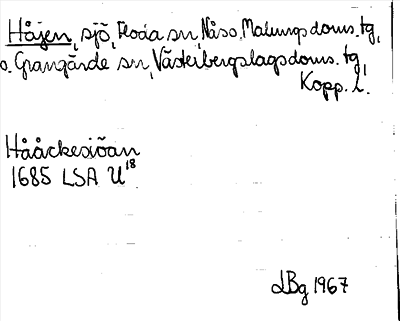 Håjen, sjö, Floda sn, Nåso. Malungs doms. tg,
o. Grangärde sn, Västerbergslags doms. tg,
Kopp. l.
Hååckesiöan
1685 LSA U18
LBg 1967